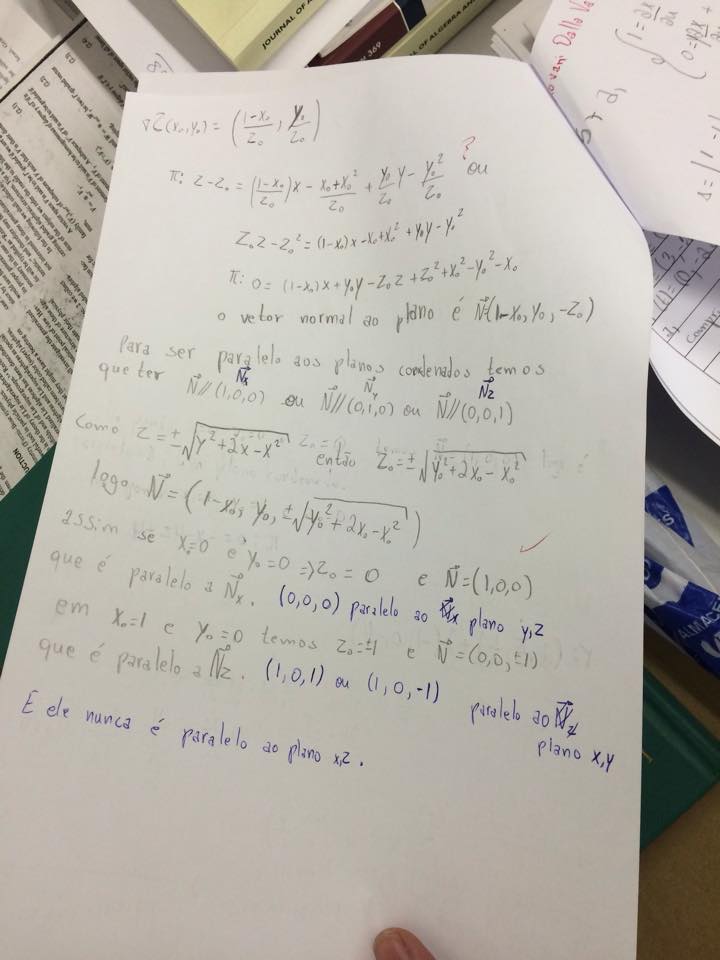 JOURNAL OF ALGEBRA AN
JOURNAL OF A
369
∇Z(x₀,y₀) = ((1-x₀)/Z₀ ; y₀/Z₀)
?
π: Z-Z₀ = ((1-x₀)/Z₀)x - (x₀+x₀²)/Z₀ + (y₀/Z₀)y - y₀²/Z₀ ou
Z₀Z-Z₀² = (1-x₀)x-x₀+x₀²+y₀y-y₀²
π: 0= (1-x₀)x+y₀y-Z₀Z+Z₀²+x₀²-y₀²-x₀
o vetor normal ao plano é N⃗=(1-x₀, y₀, -Z₀)
Para ser paralelo aos planos coordenados temos
N⃗x N⃗y N⃗z
que ter N⃗//(1,0,0) ou N⃗//(0,1,0) ou N⃗//(0,0,1)
Como Z=±√(y²+2x-x²) então Z₀=±√(y₀²+2x₀-x₀²)
logo N⃗=(1-x₀, y₀, ±√(y₀²+2x₀-x₀²))
assim se x₀=0 e y₀=0 => Z₀=0 e N⃗=(1,0,0)
que é paralelo a N⃗x. (0,0,0) paralelo ao plano y,z
em x₀=1 e y₀=0 temos Z₀=±1 e N⃗=(0,0,±1)
que é paralelo a N⃗z. (1,0,1) ou (1,0,-1) paralelo ao
plano x,y
E ele nunca é paralelo ao plano x,z.